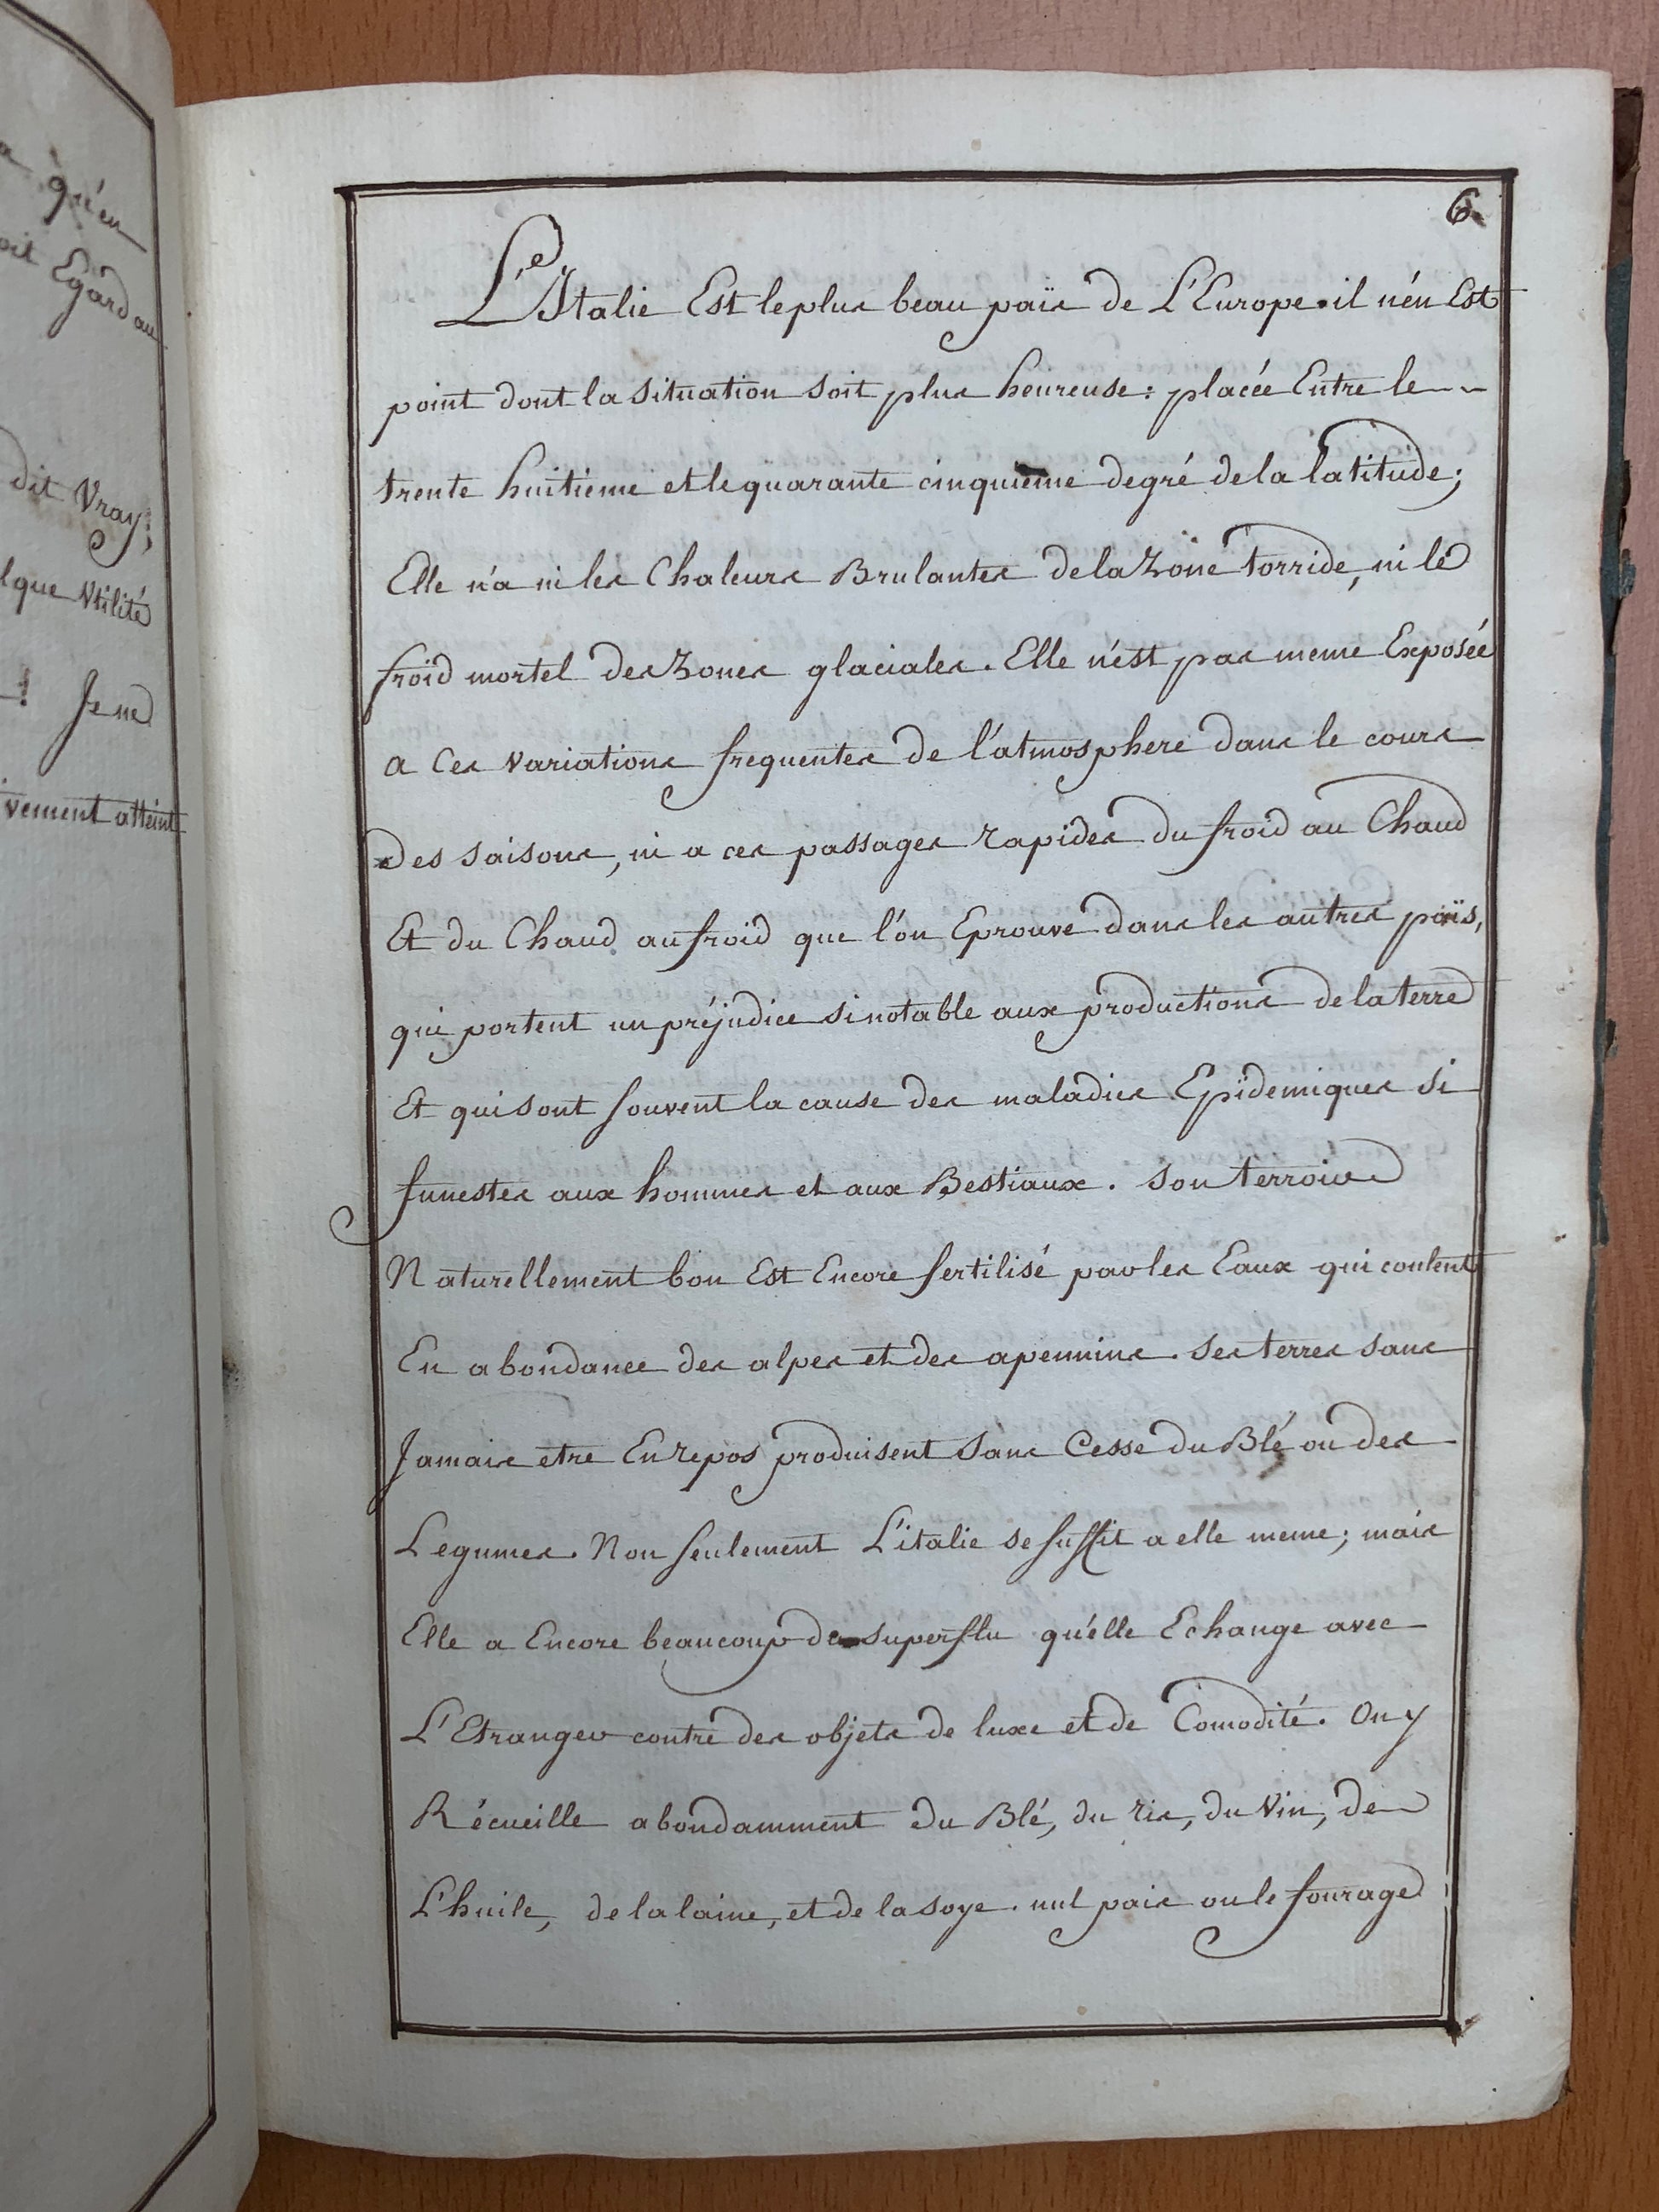 qu'en
oit Egard au
dit Vray;
lque Utilité
! Je ne
vement atteint
6.
L'Italie Est le plus beau païs de L'Europe. il n'én Est
point dont la situation soit plus heureuse: placée Entre le
trente huitieme et le quarante cinquieme degré de la latitude;
Elle n'a ni les Chaleurs Brulantes de la Zone torride, ni le
froid mortel des Zones glaciales. Elle n'ést pas meme Exposée
a Ces Variations frequentes de l'atmosphere dans le cours
Des saisons, ni a ces passages rapides du froid au Chaud
Et du Chaud au froid que l'ón Eprouve dans les autres païs,
qui portent un préjudice si notable aux productions de la terre
Et qui sont souvent la cause des maladies Epidemiques si
funestes aux hommes et aux Bestiaux. son terroir
Naturellement bon Est Encore fertilisé par les Eaux qui coulent
En abondance des alpes et des apennins. ses terres sans
Jamais etre En repos produisent sans Cesse du Blé ou des
Legumes. Non seulement L'italie se suffit a elle meme; mais
Elle a Encore beaucoup de superflu qu'elle Echange avec
L'Etranger contre des objets de luxe et de Comodité. On y
Récueille abondamment du Blé, du ris, du Vin, de
L'huile, de la laine, et de la soye. nul païs ou le fourage